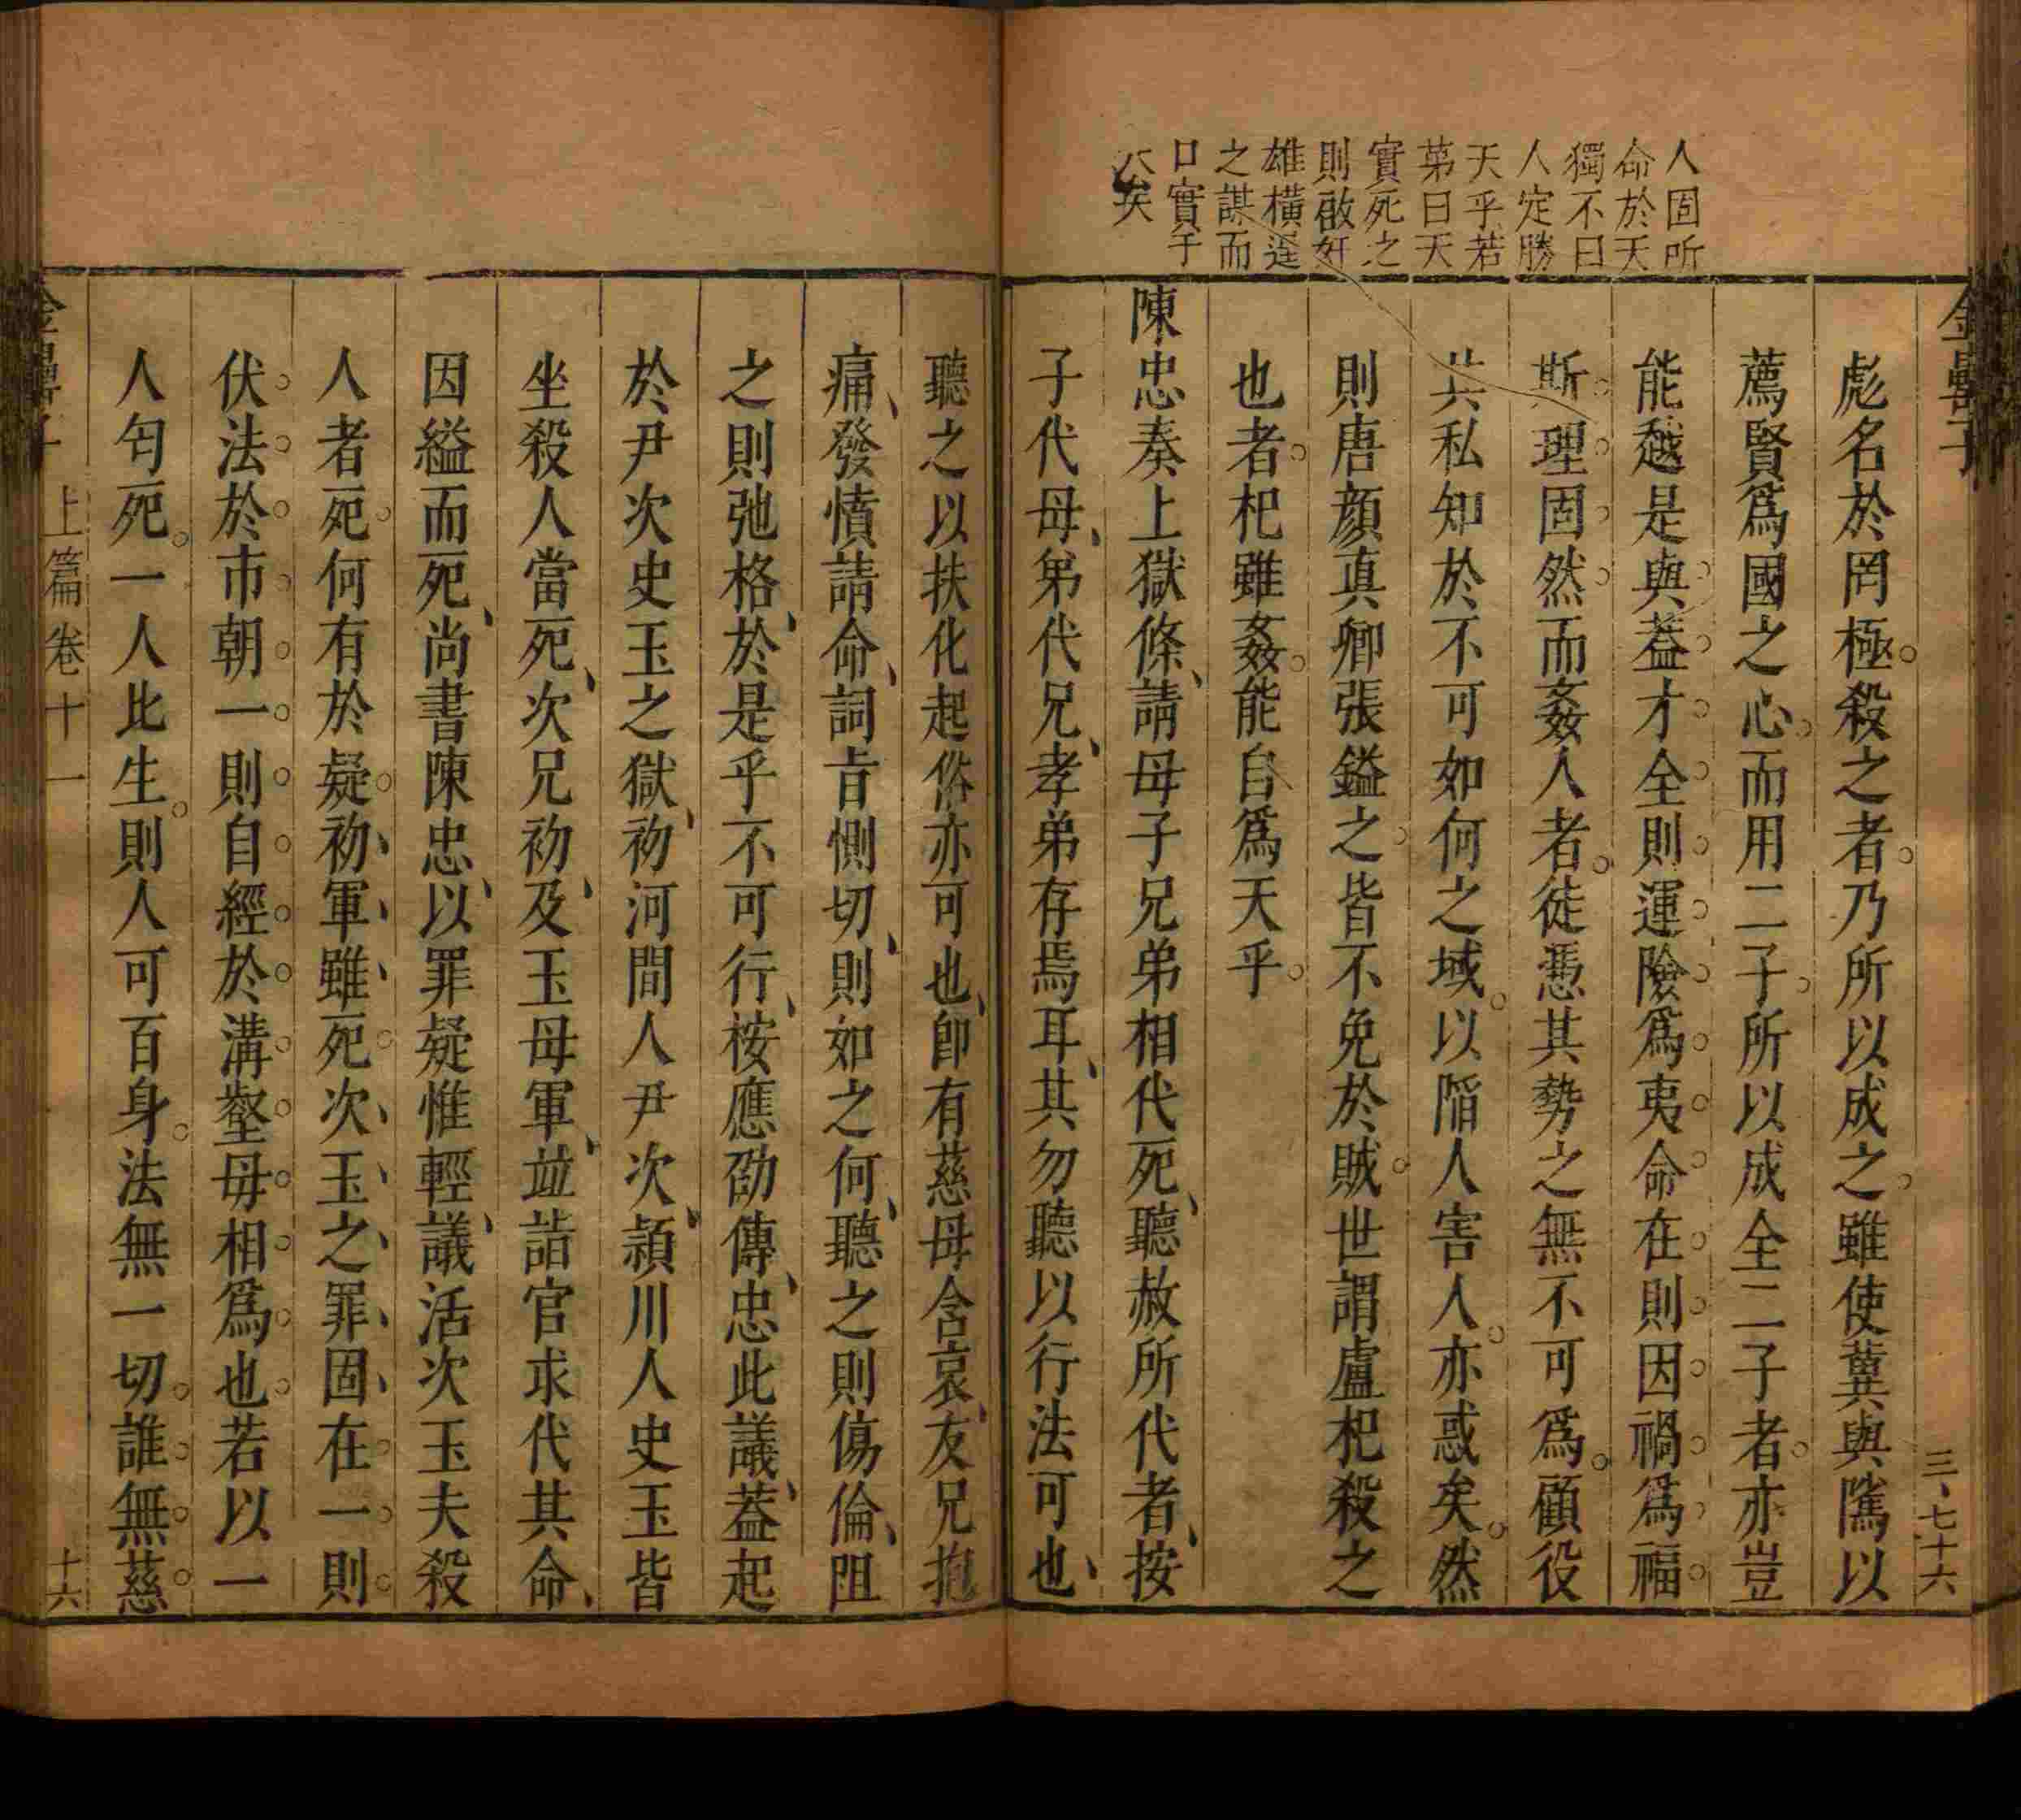 人固所
命於天
獨不曰
人定勝
天乎若
第曰天
實死之
則啟奸
雄橫逞
之謀而
口實于
矣
三七十六
彪名於罔極殺之者乃所以成之雖使冀與隲以
薦賢爲國之心而用二子所以成全二子者亦豈
能越是與葢才全則運險爲夷命在則因禍爲福
斯理固然而姦人者徒慿其勢之無不可爲顧役
其私知於不可如何之域以陷人害人亦惑矣然
則唐顔真卿張鎰之皆不免於賊世謂盧杞殺之
也者杞雖姦能自爲天乎
陳忠奏上獄條請母子兄弟相代死聽赦所代者按
子代母弟代兄孝弟存焉耳其勿聽以行法可也
聽之以扶化起俗亦可也卽有慈母含哀友兄抱
痛發憤請命詞旨惻切則如之何聽之則傷倫阻
之則弛格於是乎不可行桉應劭傳忠此議葢起
於尹次史玉之獄初河間人尹次潁川人史玉皆
坐殺人當死次兄初及玉母軍並詣官求代其命
因縊而死尚書陳忠以罪疑惟輕議活次玉夫殺
人者死何有於疑初軍雖死次玉之罪固在一則
伏法於市朝一則自經於溝壑毋相爲也若以一
人匄死一人比生則人可百身法無一切誰無慈
上篇卷十一
十六